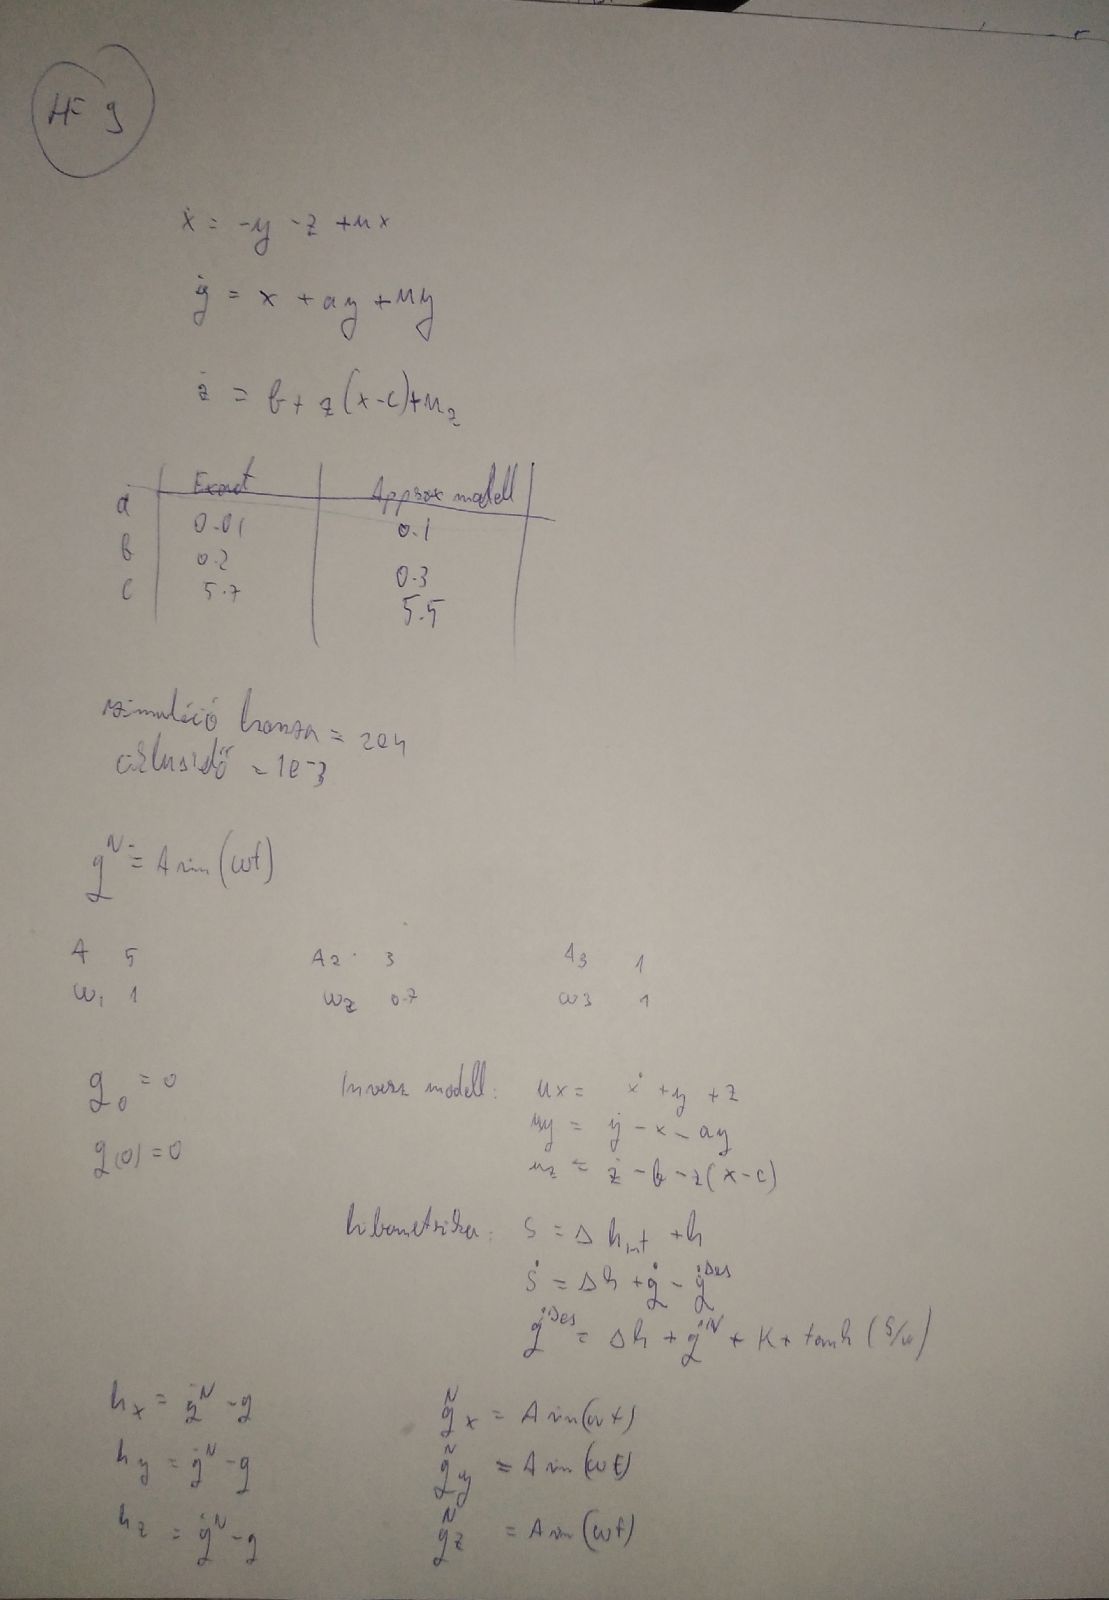 HF 9
ẋ = -y - z + ux
ẏ = x + ay + uy
ż = b + z(x-c) + u_z
Exact Approx modell
a 0.01 0.1
b 0.2 0.3
c 5.7 5.5
szimuláció hossza = 20
ciklusidő = 1e-3
q^N = A sin(ωt)
A 5 A2 3 A3 1
ω1 1 ω2 0.7 ω3 1
q_0 = 0 Inverz modell: ux = ẋ + y + z
q(0) = 0 uy = ẏ - x - ay
uz = ż - b - z(x-c)
hibametrika: S = Δ h_int + h
Ṡ = Δh + q̇ - q̇^Des
q̇^Des = Δh + q̇^N + K * tanh(S/w)
h_x = q^N - q q^N_x = A sin(ωt)
h_y = q^N - q q^N_y = A sin(ωt)
h_z = q^N - q q^N_z = A sin(ωt)